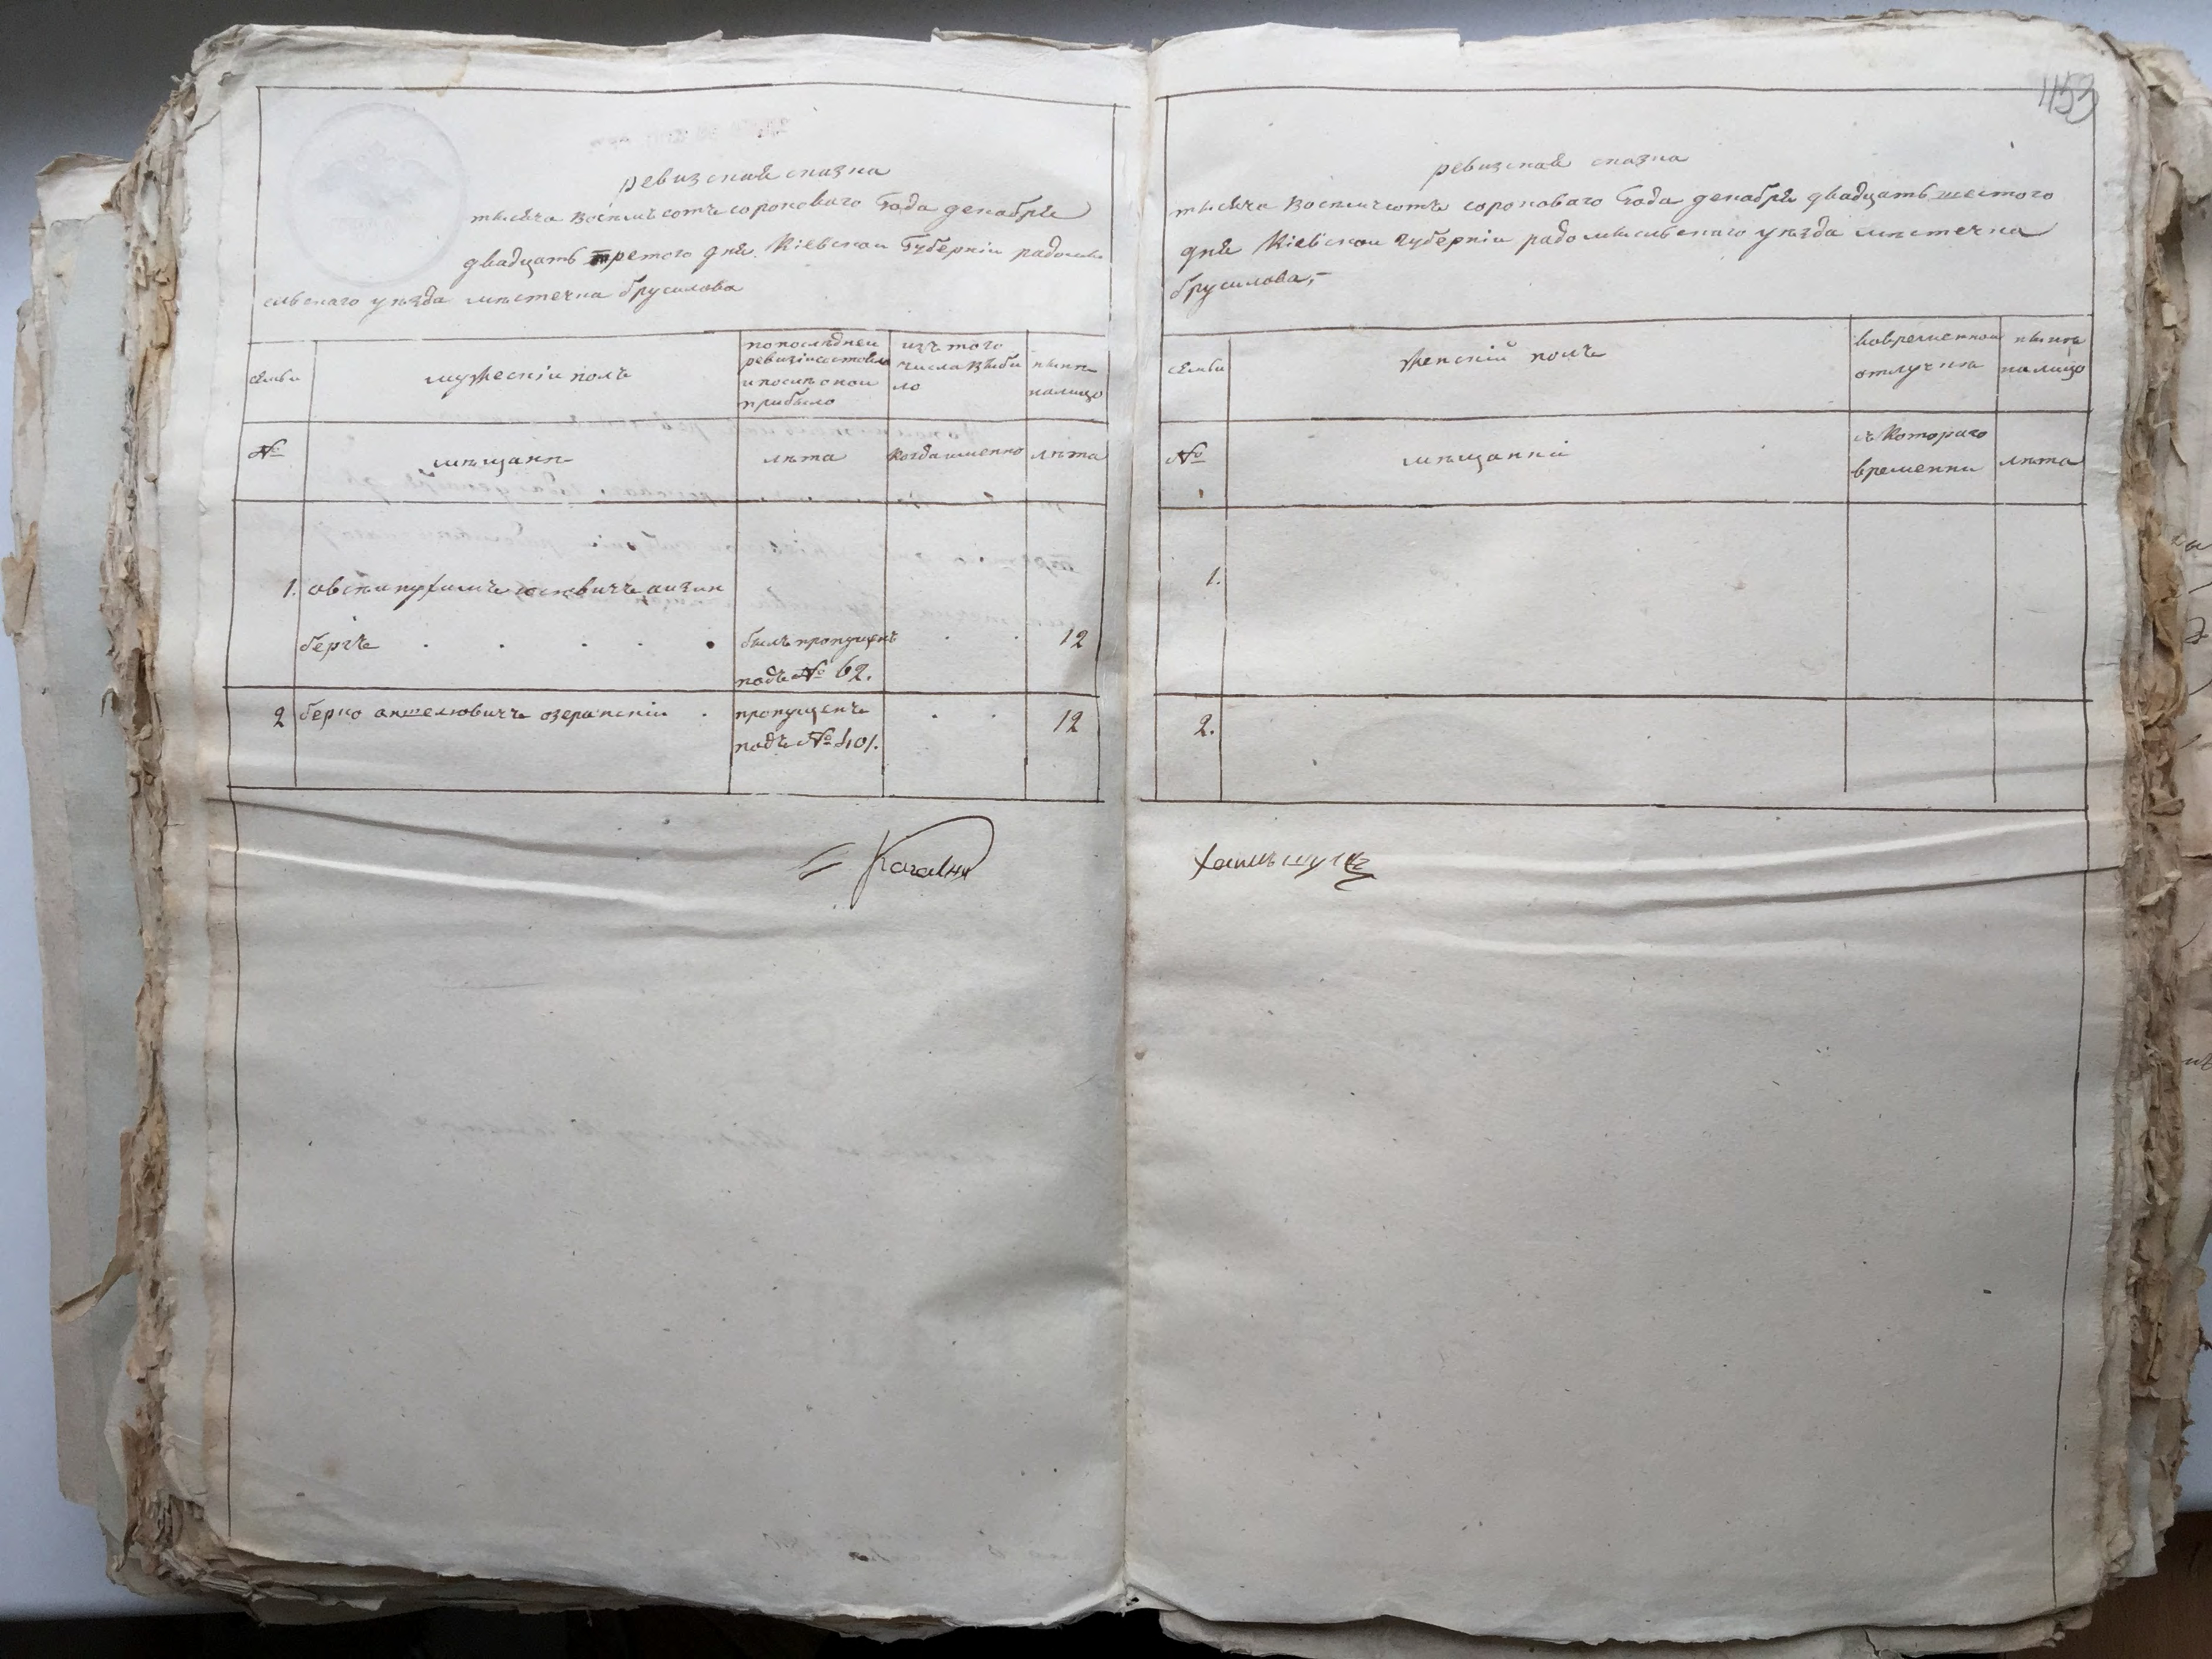 ревизская сказка
тысяча восемьсотъ сороковаго Года декабря
двадцать третого дня Кіевской Губерніи радомы
сльского уѣзда мѣстечка брусилова
семьи
мужескій полъ
попослѣдней
ревизіи состояло
и послѣ оной
прибыло
изъ того
числа выбы
ло
нынѣ
налицо
№
мѣщанѣ
лѣта
когда именно
лѣта
1.
бергъ
былъ пропущенъ
12
подъ № 62.
2
берко аншелювичъ озеранскій
пропущенъ
12
подъ № 401.
453
ревизская сказка
тысяча восемьсотъ сороковаго Года декабря двадцать шестого
дня Кіевской Губерніи радомысльскаго уѣзда мѣстечка
брусилова,-
семьи
женскій полъ
вовременной
отлучкѣ
нынѣ
налицо
№
мѣщанки
съ котораго
времянни
лѣта
1.
2.